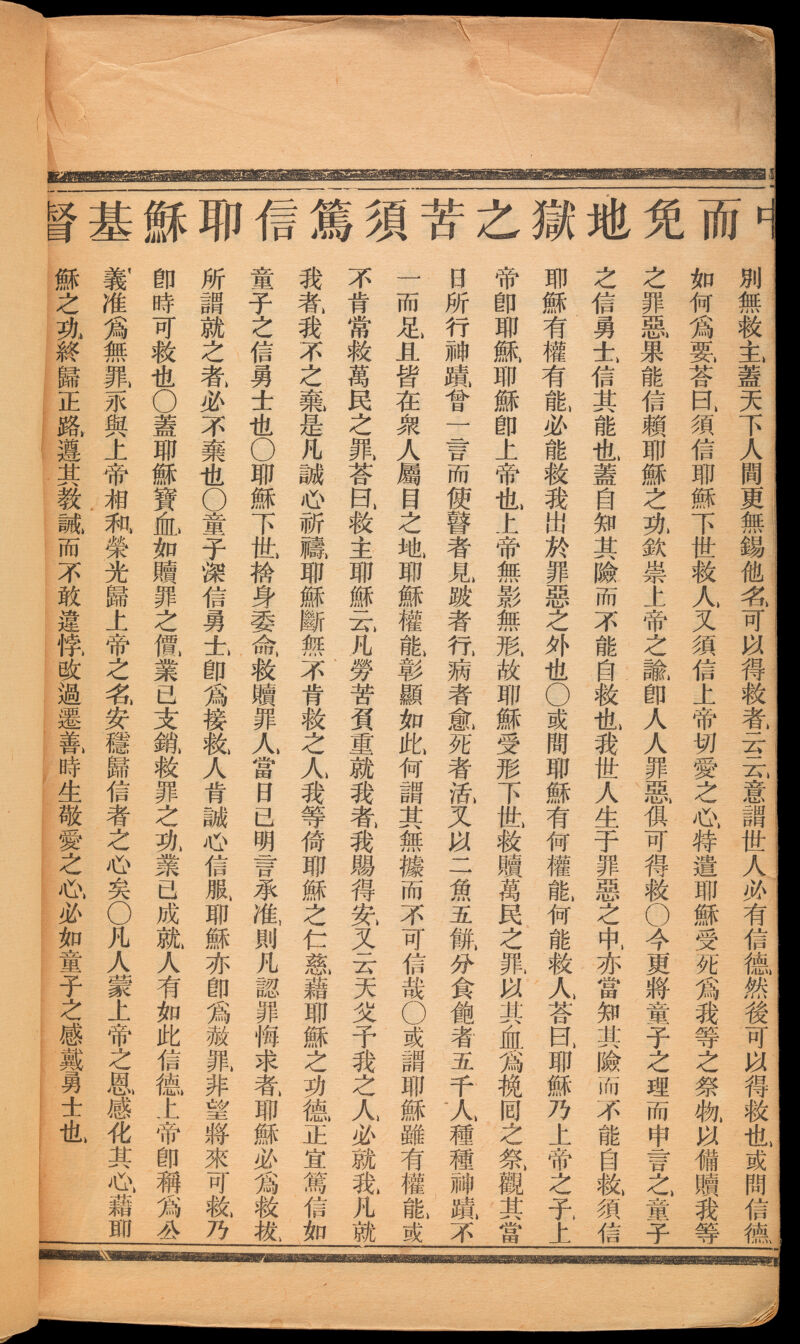 中而免地獄之苦須篤信耶穌基督
別無救主、蓋天下人間更無錫他名、可以得救者、云云、意謂世人必有信德、然後可以得救也、或問信德、
如何爲要、荅曰、須信耶穌下世救人、又須信上帝切愛之心、特遣耶穌受死爲我等之祭物、以備贖我等
之罪惡、果能信賴耶穌之功、欽崇上帝之諭、卽人人罪惡、俱可得救〇今更將童子之理而申言之、童子
之信勇士、信其能也、蓋自知其險而不能自救也、我世人生于罪惡之中、亦當知其險而不能自救、須信
耶穌有權有能、必能救我出於罪惡之外也〇或問耶穌有何權能、何能救人、荅曰、耶穌乃上帝之子、上
帝卽耶穌、耶穌卽上帝也、上帝無影無形、故耶穌受形下世、救贖萬民之罪、以其血爲挽囘之祭、觀其當
日所行神蹟、曾一言而使瞽者見、跛者行、病者愈、死者活、又以二魚五餅、分食飽者五千人、種種神蹟、不
一而足、且皆在衆人屬目之地、耶穌權能、彰顯如此、何謂其無據而不可信哉〇或謂耶穌雖有權能、或
不肯當救萬民之罪、荅曰、救主耶穌云、凡勞苦負重就我者、我賜得安、又云天父予我之人、必就我、凡就
我者、我不之棄、是凡誠心祈禱、耶穌斷無不肯救之人、我等倚耶穌之仁慈、藉耶穌之功德、正宜篤信如
童子之信勇士也〇耶穌下世、捨身委命、救贖罪人、當日已明言承准、則凡認罪悔求者、耶穌必爲救拔、
所謂就之者、必不棄也〇童子深信勇士、卽爲接救、人肯誠心信服、耶穌亦卽爲赦罪、非望將來可救、乃
卽時可救也〇蓋耶穌寶血、如贖罪之價、業已支銷、救罪之功、業已成就、人有如此信德、上帝卽稱爲公
義、准爲無罪、永與上帝相和、榮光歸上帝之名、安穩歸信者之心矣〇凡人蒙上帝之恩、感化其心、藉耶
穌之功、終歸正路、遵其教誡、而不敢違悖、改過遷善、時生敬愛之心、必如童子之感戴勇士也、